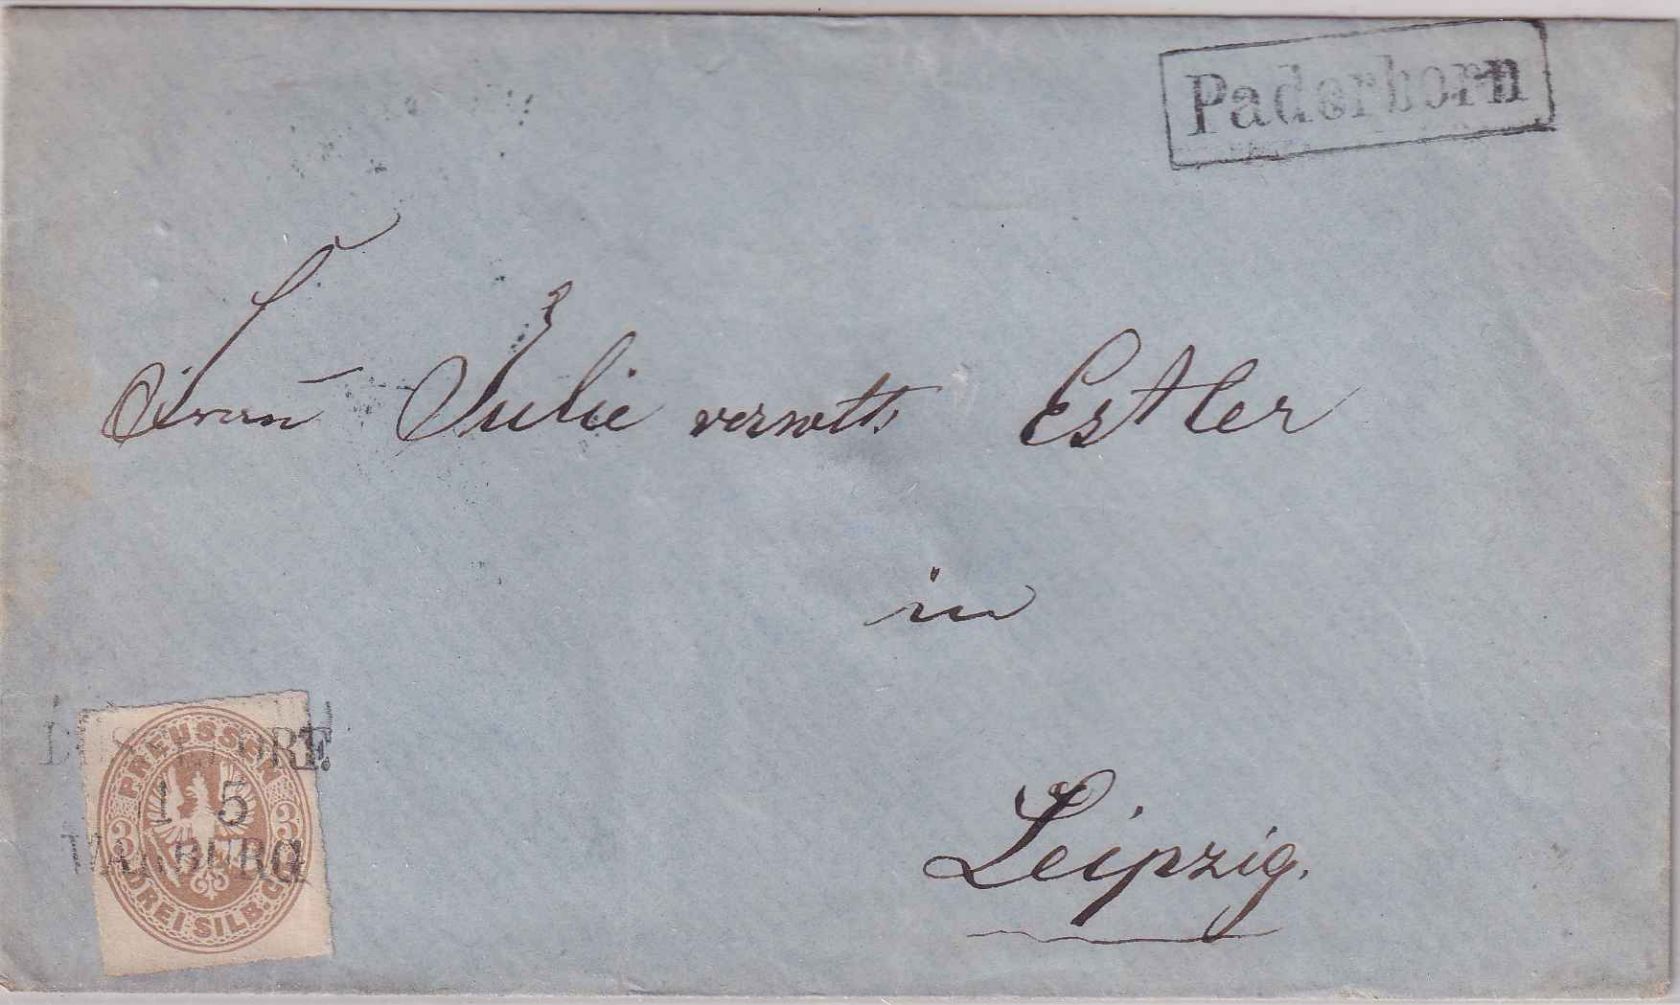 Paderborn
Frau Julie verwttw. Estler
in
Leipzig.
PREUSSEN
3 3
DREI SILB. GR.
DÜSSELDORF.
1 5
WARBURG